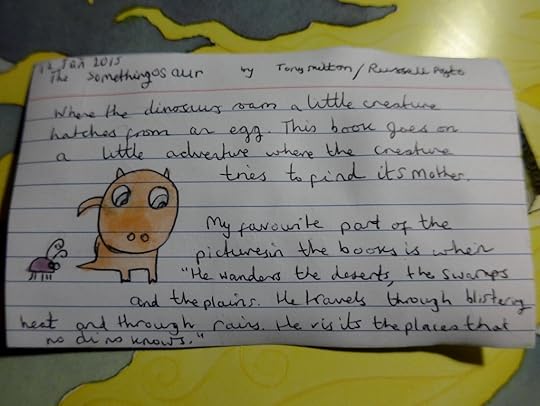 12 Jan 2015
The Somethingosaur by Tony Mitton/Russell Ayto
Where the dinosaurs roam a little creature
hatches from an egg. This book goes on
a little adventure where the creature
tries to find its mother.
My favourite part of the
pictures in the books is when
"He wanders the deserts, the swamps
and the plains. He travels through blistering
heat and through rains. He visits the places that
no dino knows."